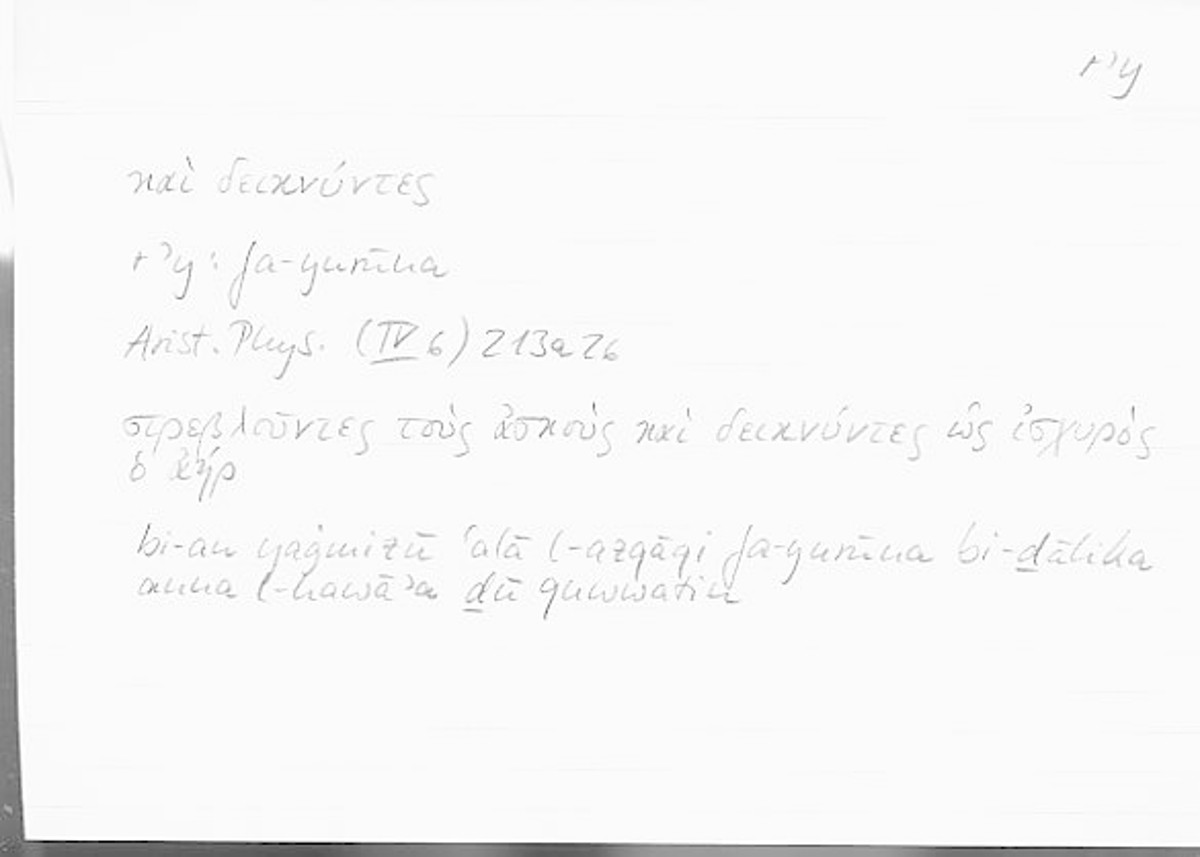 rʾy
καὶ δεικνύντες
rʾy: fa-yurīna
Arist. Phys. (IV 6) 213a26
στρεβλοῦντες τοὺς ἀσκοὺς καὶ δεικνύντες ὡς ἰσχυρὸς
ὁ ἀήρ
bi-an yaġmizū ʿalā l-azqāqi fa-yurīna bi-ḏālika
anna l-hawāʾa ḏū quwwatin